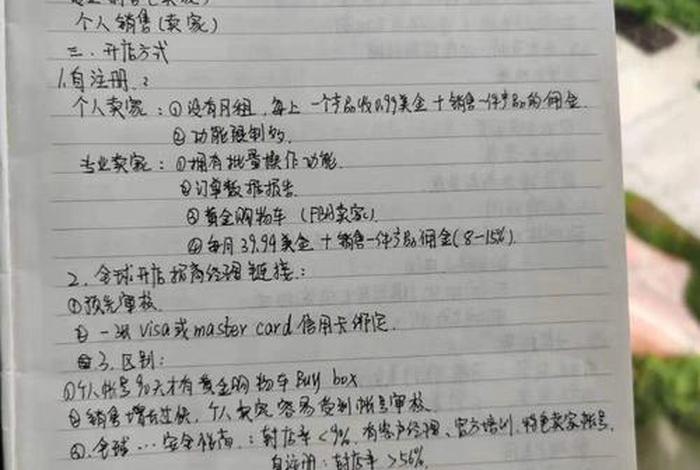 个人销售(卖家)
三、开店方式
1.自注册:
个人卖家:①没有月租,每上一个产品收0.99美金+销售一件产品的佣金
②功能限制的.
专业卖家:①拥有批量操作功能.
②订单数据报告.
③黄金购物车(FBA卖家).
④每月39.99美金+销售一件产品佣金(8-15%).
2.全球开店招商经理链接:
①预先审核.
②一张visa或master card信用卡绑定.
3.区别:
①个人帐号90天才有黄金购物车Buy box
②销售增长过快,个人卖家容易受到帐号审核.
③.全球...安全指南:封店率<9%.有客户经理、官方培训、特色卖家帐号.
自注册:封店率>56%.